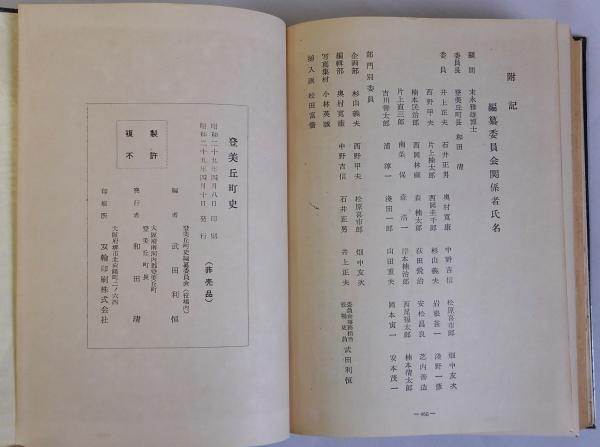 附記
編纂委員会関係者氏名
顧問 末永雅雄博士
委員長 登美丘町長 和田清
委員 井上正男 石井正男 奥村寛康 中野吉信 松原喜市郎 畑中友次
西野甲夫 片上楠太郎 西岡圭千郎 杉山義夫 岩根盆一 淺野一雄
楠本民治郎 西岡林 萩田悦治 安松昌良 芝内善造
片上直三郎 南条保 森浩一 岸本楠治郎 西尾福太郎 楠本清太郎
吉川弥太郎 浦淳一 淺田一郎 山田重夫 岡本寅一 安本茂一
部門別委員
企画部 杉山義夫 西野甲夫 松原喜市郎 畑中友次
編輯部 奥村寛康 中野吉信 石井正男 井上正夫 武田利恒
写真集材 小林英誠
挿入画 松田富
—466—
登美丘町史
(非売品)
昭和二十九年四月八日印刷
昭和二十九年四月十日発行
登美丘町史編纂委員会(役場内)
編者 武田利恒
大阪府南河内郡登美丘町
登美丘町長
発行者 和田清
大阪府堺市北向陽町二ノ六四
印刷所 双輪印刷株式会社
複製
不許